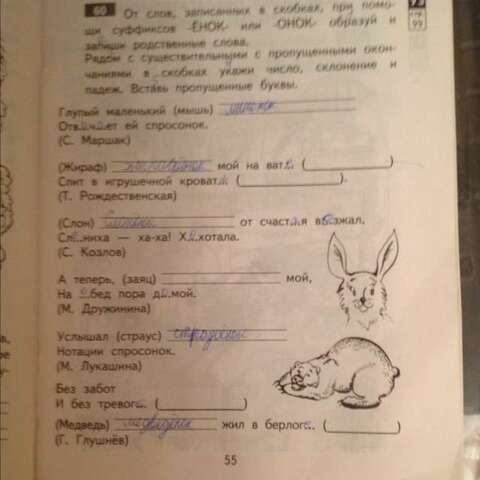 60 От слов, записанных в скобках, при помо-
щи суффиксов -ЁНОК- или -ОНОК- образуй и
запиши родственные слова.
Рядом с существительными с пропущенными окон-
чаниями в скобках укажи число, склонение и
падеж. Вставь пропущенные буквы.
Глупый маленький (мышь)
Отвичает ей спросонок.
(С. Маршак)
(Жираф) мой на ват (
Спит в игрушечной кроват (
(Т. Рождественская)
(Слон) слонёнок от счастья взжал.
Сл ниха — ха-ха! Х хотала.
(С. Козлов)
А теперь, (заяц) мой,
На обед пора д мой.
(М. Дружинина)
Услышал (страус) страусёнок
Нотации спросонок.
(М. Лукашина)
Без забот
И без тревог (
(Медведь) медведёнок жил в берлог (
(Г. Глушнёв)
55
99